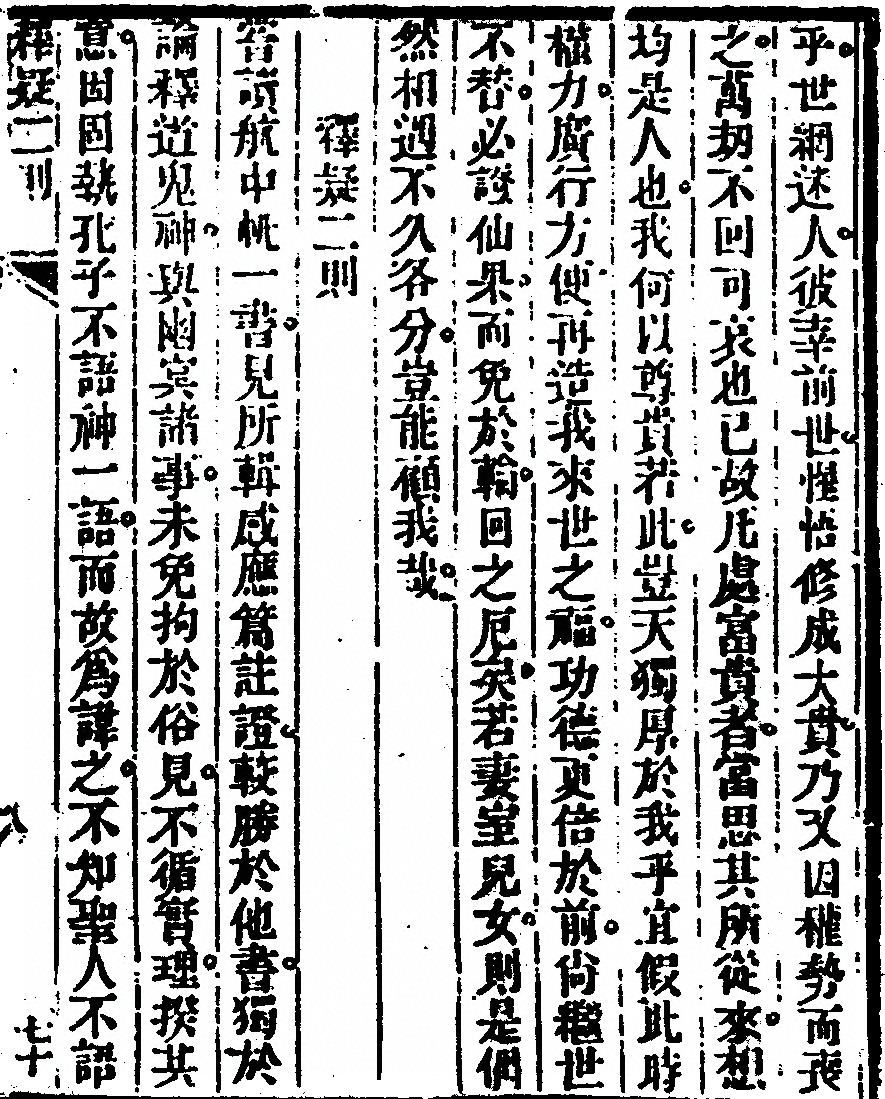 乎世網迷人彼幸前世惺悟修成大貴乃又因權勢而喪
之萬劫不回可哀也已故凡處富貴者當思其所從來想
均是人也我何以尊貴若此豈天獨厚於我乎宜假此時
權力廣行方便再造我來世之福功德更倍於前尚繼世
不替必證仙果而免於輪回之厄矣若妻室兒女則是偶
然相遇不久各分豈能顧我哉
釋疑二則
嘗讀航中帆一書見所輯感應篇註證較勝於他書獨於
論釋道鬼神與幽冥諸事未免拘於俗見不循實理揆其
意固固執孔子不語神一語而故為諱之不知聖人不語
釋疑二則
七十